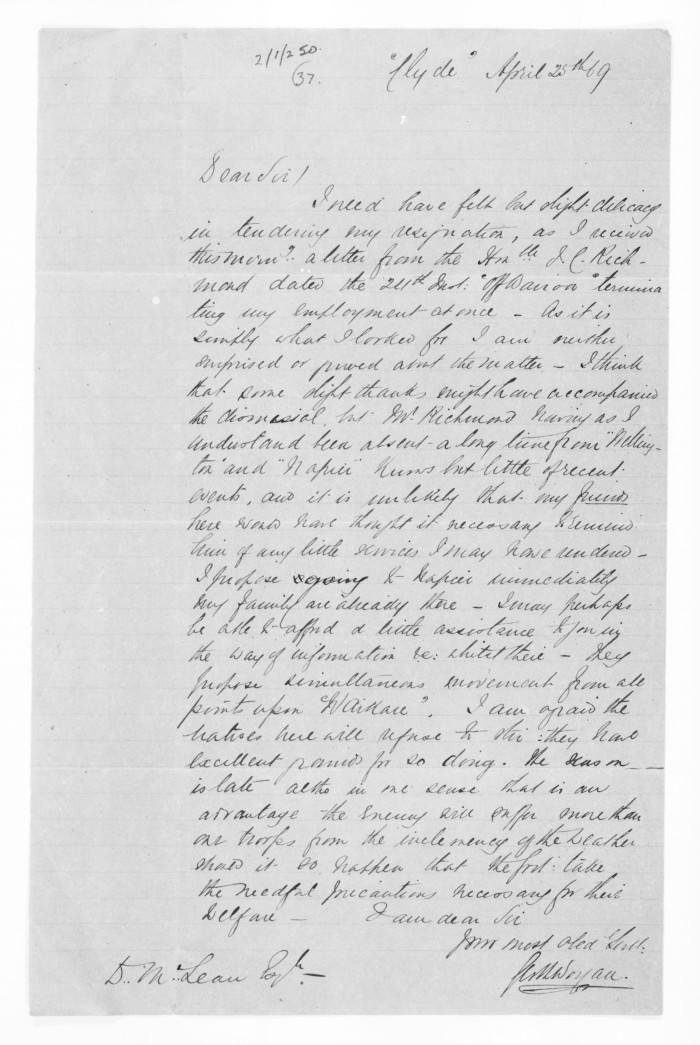 2/1/2 50.
37.
"Clyde" April 25th 69
Dear Sir!
I need have felt but slight delicacy
in tendering my resignation, as I received
this morng. a letter from the Honble J. C. Rich-
mond dated the 24th Inst: "Off Wairoa" termina
ting my employment at once - As it is
simply what I looked for I am neither
surprised or the matter - I think
that some slight thanks might have accompanied
the dismissial, but Mr Richmond having as I
understand been absent a long time from "Welling-
ton" and "Napier" knows but little of recent
events, and it is unlikely that my friends
here would have thought it necessary to remind
him of any little services I may have rendered -
I propose going to Napier immediately
my family are already there - I may perhaps
be able to afford a little assistance to you in
the way of information &c: whilst there - they
propose simultaneous movement from all
points upon "Waikare". I am afraid the
natives here will refuse to stir: they have
excellent grounds for so doing. The season -
is late altho in one sense that is an
advantage the Enemy will suffer more than
our troops from the inclemency of the Weather
should it so happen that the Govt: take
the needful precautions necessary for their
Welfare - I am dear Sir
Your most obed Servt:
D. McLean Esqre -